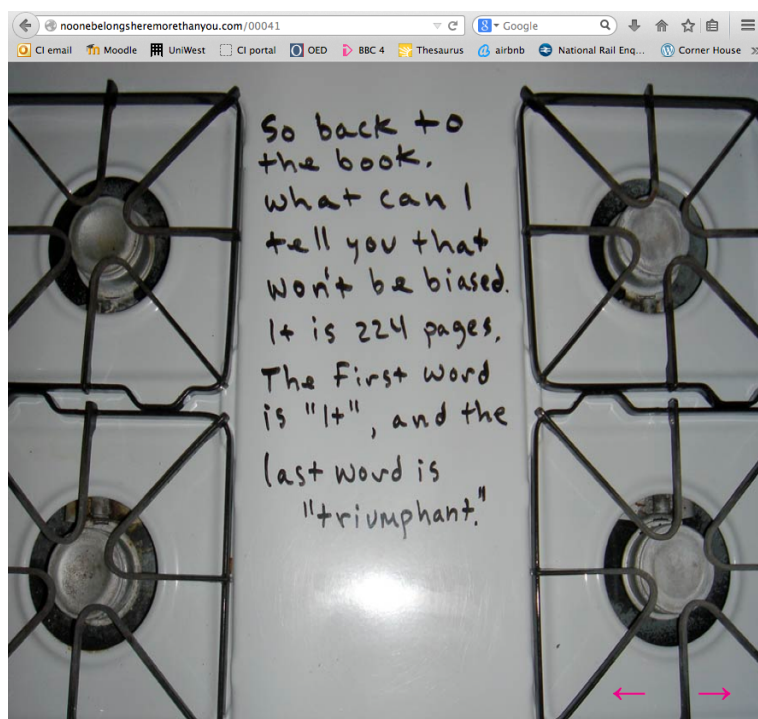 noonebelongsheremorethanyou.com/00041
Google
CI email Moodle UniWest CI portal OED BBC 4 Thesaurus airbnb National Rail Enq... Corner House
So back to
the book.
what can I
tell you that
won't be biased.
It is 224 pages.
The First word
is "It", and the
last word is
"triumphant."